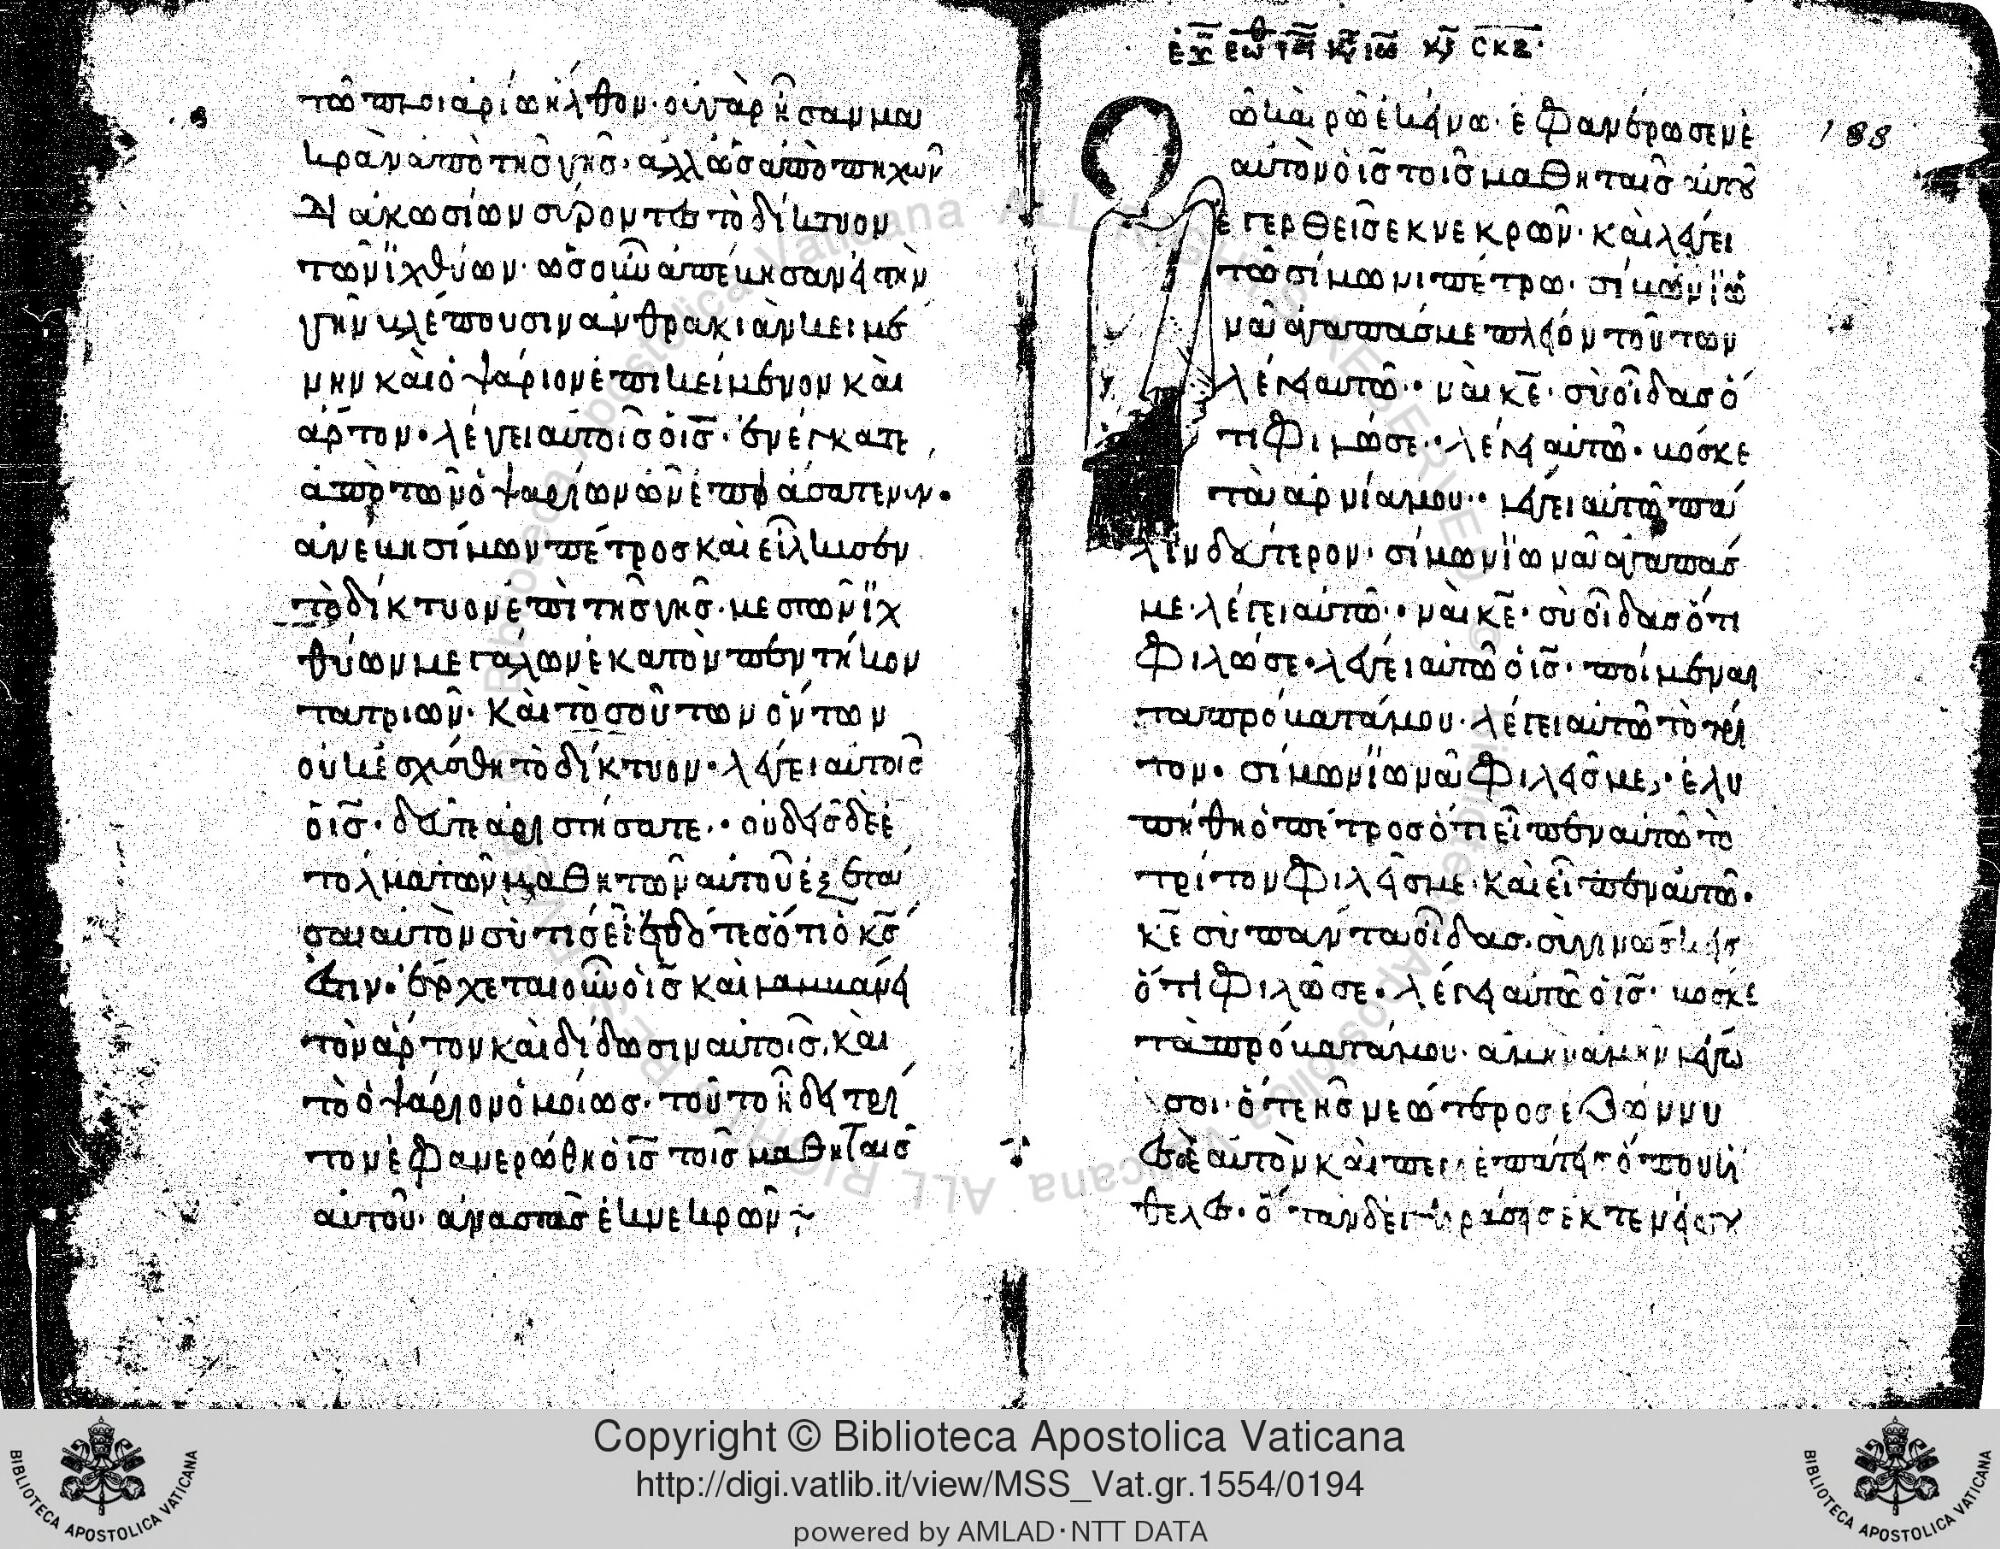 τῶ πλοιαρίω ἦλθον· οὐ γὰρ ἦσαν μα
κρὰν ἀπὸ τῆς γῆς· ἀλλ' ὡς ἀπὸ πηχῶν
διακοσίων σύροντες τὸ δίκτυον
τῶν ἰχθύων· ὡς οὖν ἀπέβησαν εἰς τὴν
γῆν βλέπουσιν ἀνθρακιὰν κειμέ
νην καὶ ὀψάριον ἐπικείμενον καὶ
ἄρτον· λέγει αὐτοῖς ὁ ις· ἐνέγκατε
ἀπὸ τῶν ὀψαρίων ὧν ἐπιάσατε νῦν·
ἀνέβη σίμων πέτρος καὶ εἵλκυσεν
τὸ δίκτυον ἐπὶ τῆς γῆς· μεστὸν ἰχ
θύων μεγάλων ἑκατὸν πεντήκον
τατριῶν· καὶ τοσούτων ὄντων
οὐκ ἐσχίσθη τὸ δίκτυον· λέγει αὐτοῖς
ὁ ις· δεῦτε ἀριστήσατε· οὐδεὶς δὲ ἐ
τόλμα τῶν μαθητῶν αὐτοῦ ἐξετά
σαι αὐτὸν σὺ τίς εἶ εἰδότες ὅτι ὁ κς
ἐστιν· ἔρχεται οὖν ὁ ις καὶ λαμβάνει
τὸν ἄρτον καὶ δίδωσιν αὐτοῖς, καὶ
τὸ ὀψάριον ὁμοίως· τοῦτο ἤδη τρί
τον ἐφανερώθη ὁ ις τοῖς μαθηταῖς
αὐτοῦ· ἀναστὰς ἐκ νεκρῶν
ῶ καιρῶ ἐκείνω· ἐφανέρωσεν ἑ
αυτὸν ὁ ις τοῖς μαθηταῖς αὐτοῦ
ἐγερθεὶς ἐκ νεκρῶν· καὶ λέγει
τῶ σίμωνι πέτρω· σίμων ἰω
νᾶ ἀγαπᾶς με πλεῖον τούτων
λέγει αὐτῶ· ναὶ κε· σὺ οἶδας ὅ
τι φιλῶ σε· λέγει αὐτῶ· βόσκε
τὰ ἀρνία μου· λέγει αὐτῶ πά
λιν δεύτερον· σίμων ἰωνᾶ ἀγαπᾶς
με· λέγει αὐτῶ· ναὶ κε· σὺ οἶδας ὅτι
φιλῶ σε· λέγει αὐτῶ ὁ ις· ποίμεναι
τὰ πρόβατά μου· λέγει αὐτῶ τὸ τρί
τον· σίμων ἰωνᾶ φιλεῖς με· ἐλυ
πήθη ὁ πέτρος ὅτι εἶπεν αὐτῶ τὸ
τρίτον φιλεῖς με· καὶ εἶπεν αὐτῶ·
κε σὺ πάντα οἶδας· σὺ γινώσκεις
ὅτι φιλῶ σε· λέγει αὐτῶ ὁ ις· βόσκε
τὰ πρόβατά μου· ἀμὴν ἀμὴν λέγω
σοι· ὅτε ἦς νεώτερος ἐζώννυ
ες ἑαυτὸν καὶ περιεπάτεις ὅπου ἤ
θελες· ὅταν δὲ γηράσης ἐκτενεῖς
188
Copyright © Biblioteca Apostolica Vaticana
http://digi.vatlib.it/view/MSS_Vat.gr.1554/0194
powered by AMLAD·NTT DATA
BIBLIOTECA APOSTOLICA VATICANA
BIBLIOTECA APOSTOLICA VATICANA